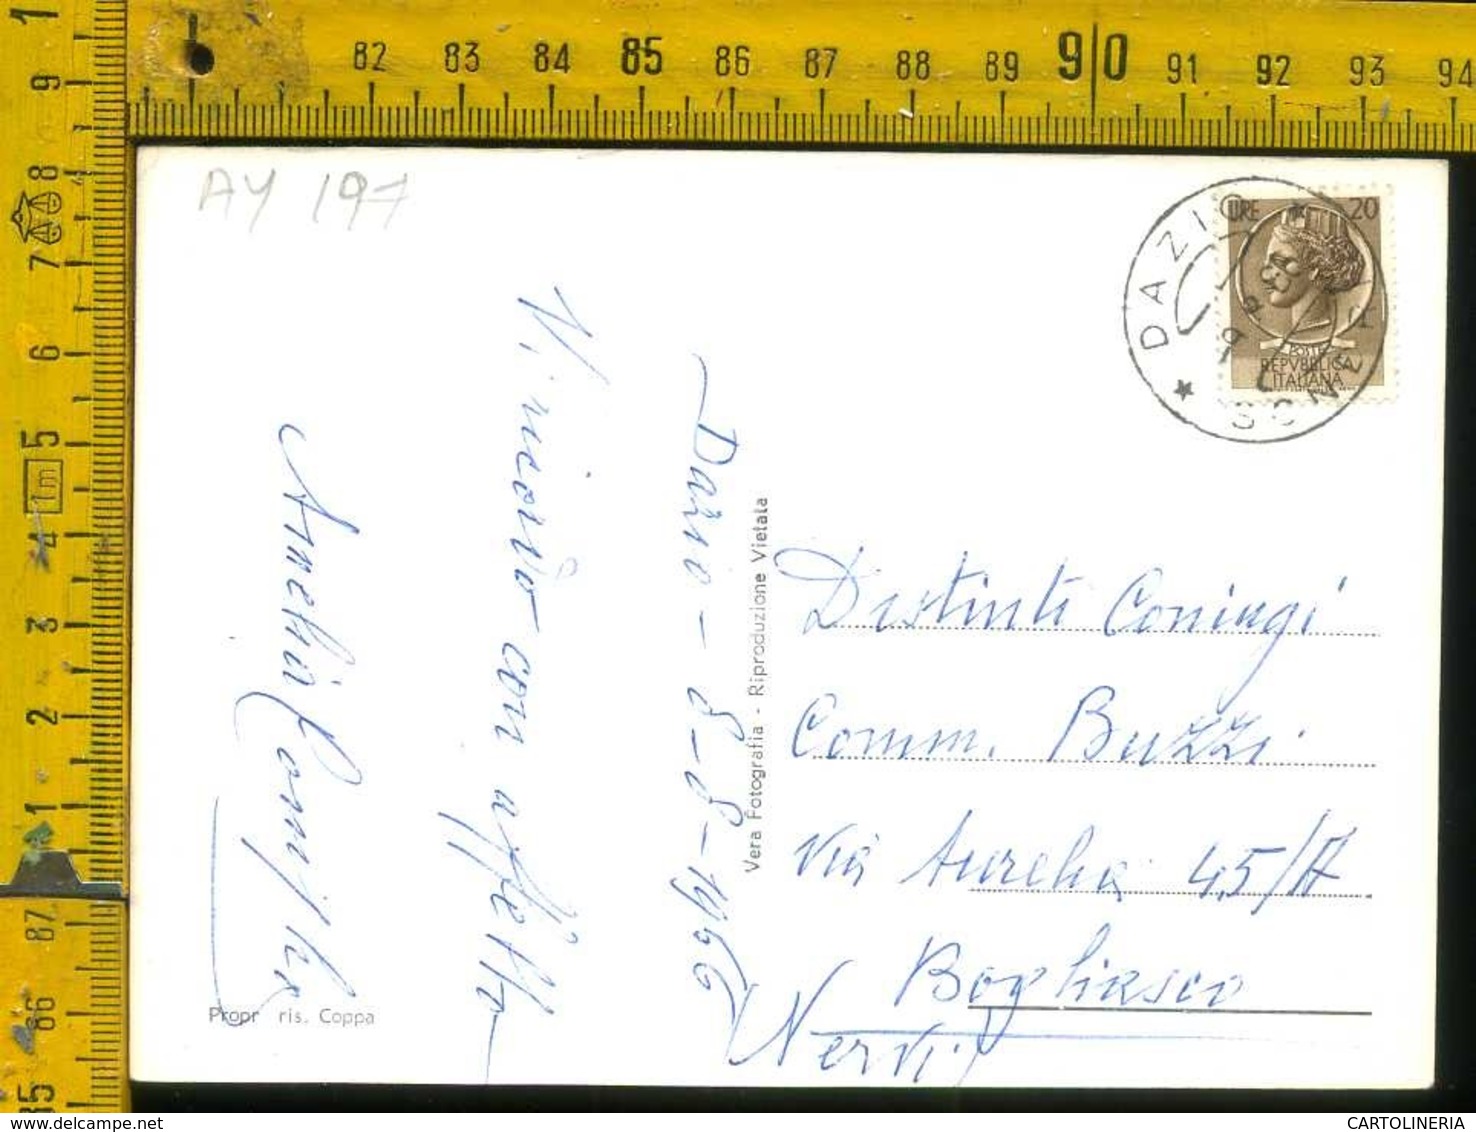 82 83 84 85 86 87 88 89 90 91 92 93 94
1
9
8
7
6
5
1m
4
3
2
1
87
86
85
AY 197
DAZIO
LIRE 20
POSTE
REPVBBLICA
ITALIANA
Dazio - 8-8-1966
Vi ricordo con affetto
Vera Fotografia - Riproduzione Vietata
Distinti Coniugi
Comm. Buzzi
Via Aurelia 45/A
Bogliasco
Nervi
Propr ris. Coppa
CARTOLINERIA